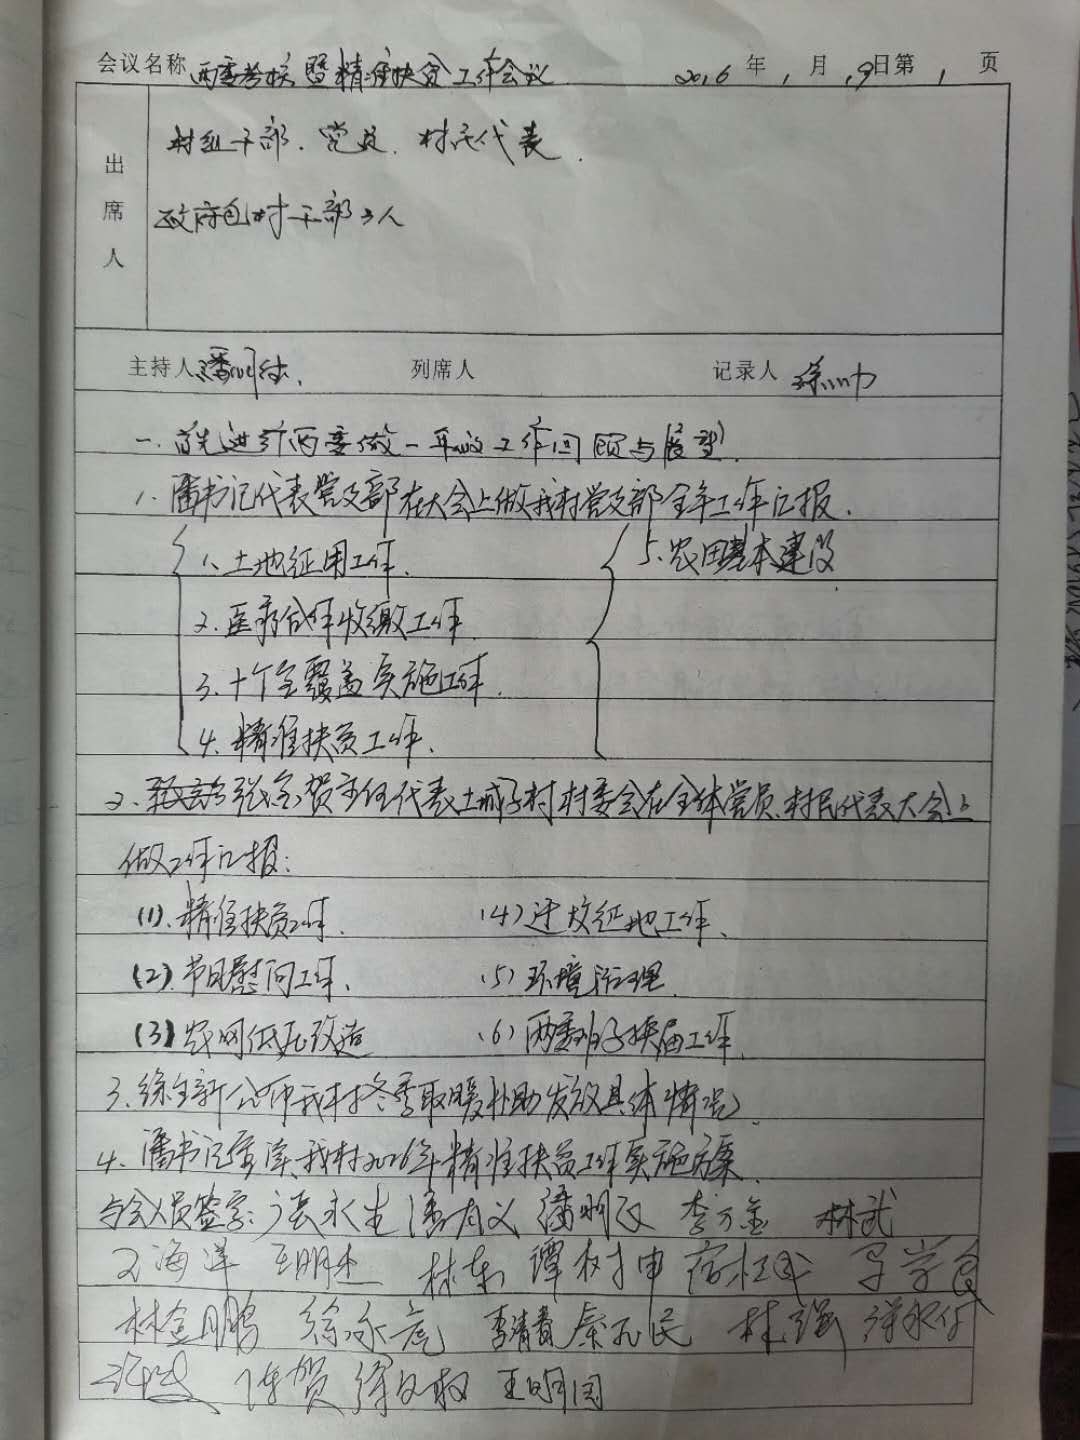 会议名称 两委考核暨精准扶贫工作会议 2016年1月19日第1页
出席人
村组干部、党员、村民代表.
政府包村干部3人
主持人 潘明 列席人 记录人 徐
一、首先进行两委做一年的工作回顾与展望
1、潘书记代表党支部在大会上做我村党支部全年工作汇报.
1、土地征用工作. 5、农田基本建设
2、医疗合作收缴工作
3、十个全覆盖实施工作.
4、精准扶贫工作、
2、张会贺主任代表土城子村村委会在全体党员、村民代表大会上
做工作汇报:
(1)、精准扶贫工作. (4)迁坟征地工作、
(2)、节日慰问工作、 (5)环境治理
(3)农网低压改造 (6)两委班子换届工作
3、徐全新公布我村冬季取暖补助发放具体情况
4、潘书记宣读我村2016年精准扶贫工作实施方案
与会人员签字: 张永生 潘有义 潘明 李万金 林武
海洋 王明 林东 谭树申 学
林金鹏 徐永彪 李清春 秦 民 林强 永
贺 徐 王明国